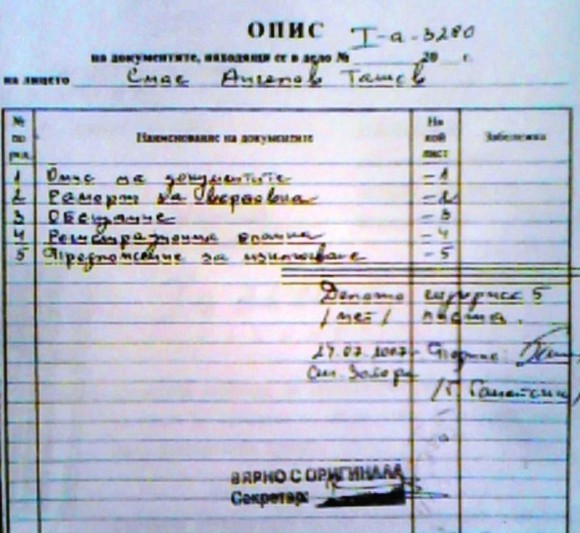 ОПИС I-а-3280
на документите, находящи се в дело № 20 г.
на лицето Спас Ангелов Ташев
№ по ред.
Наименование на документите
На кой лист
Забележка
1 Опис на документите – 1
2 Рапорт за вербовка – 2
3 Обещание – 3
4 Регистрационна бланка – 4
5 Предложение за изключване – 5
Делото съдържа 5
/пет/ листа.
27.07.2007 г.
Ст. Загора
ВЯРНО С ОРИГИНАЛА
Секретар: